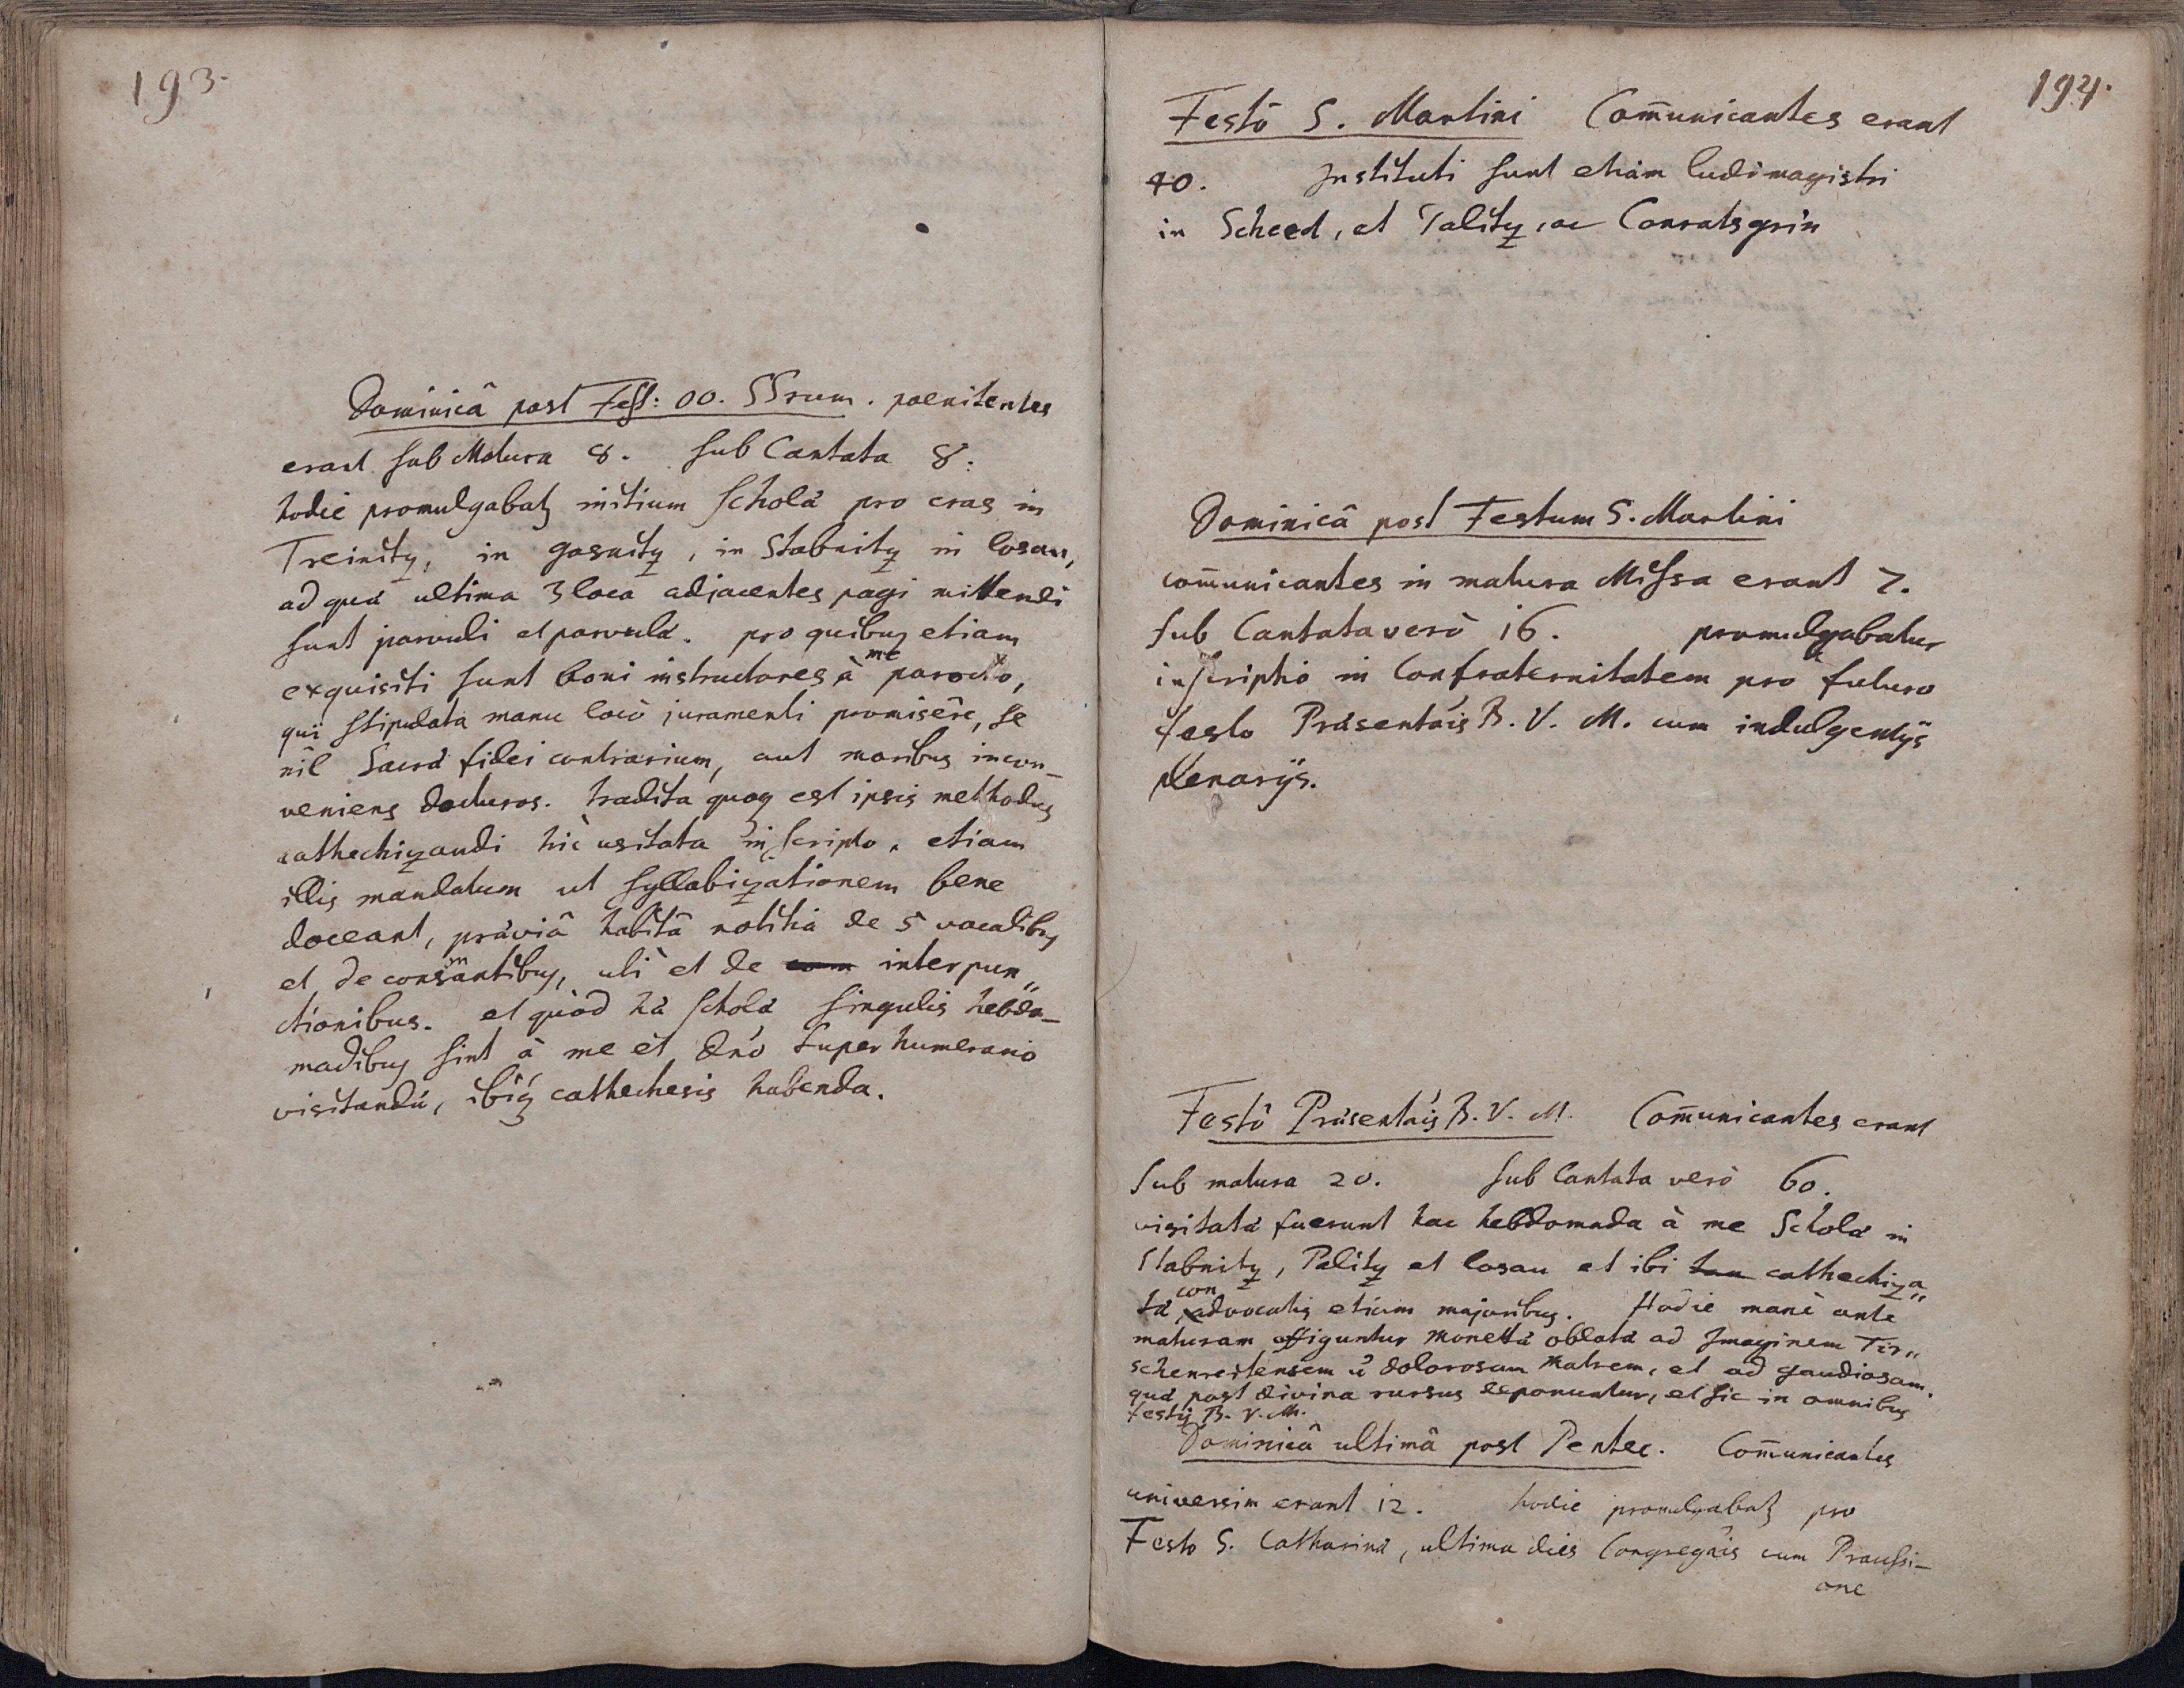 193.
Dominicâ post Fest: OO. SSrum. poenitentes
erant sub Matura 8. sub Cantata 8.
hodie promulgabatz initium Scholæ pro cras in
Treinitz, in gosnitz, in Stabnitz in losau,
ad quæ ultima 3 loca adjacentes pagi mittendi
sunt parvuli et parvulæ. pro quibus etiam
exquisiti sunt boni instructores à me parocho,
qui stipulata manu locò juramenti promisêre, se
nil Sacræ fidei contrarium, aut moribus incon-
veniens docturos. tradita quoq est ipsis methodus
cathechizandi hic usitata in scripto. etiam
illis mandatum ut syllabizationem bene
doceant, præviâ habitâ notitiâ de 5 vocalibus
et de consonantibus, uti et de interpun„
ctionibus. et quòd hæ scholæ singulis hebdo-
madibus sint à me et Dno Supernumerario
visitandæ, ibiq cathechesis habenda.
194.
Festô S. Martini Com̄unicantes erant
40. Instituti sunt etiam ludimagistri
in Scheed, et Palitz, ac Conratsgrün
Dominicâ post Festum S. Martini
com̄unicantes in matura Missa erant 7.
sub Cantata verò 16. promulgabatur
inscriptio in Confraternitatem pro futuro
festo Præsentãis B. V. M. cum indulgentÿs
plenarÿs.
Festô Præsentãis B. V. M. Com̄unicantes erant
sub matura 20. sub Cantata verò 60.
visitatæ fuerunt hac hebdomada à me Scholæ in
Stabnitz, Palitz et losau et ibi cathechiza„
tæ, convocatis etiam majoribus. Hodie manè ante
maturam affiguntur monetæ oblatæ ad Imaginem Tir„
schenreitensem ú dolorosam Matrem, et ad gaudiosam.
quæ post divina rursus deponuntur, et sic in omnibus
festis B. V. M.
Dominicâ ultimâ post Pentec. Com̄unicantes
universim erant 12. hodie promulgabatz pro
Festo S. Catharinæ, ultima dies Congregãis cum Processi-
one